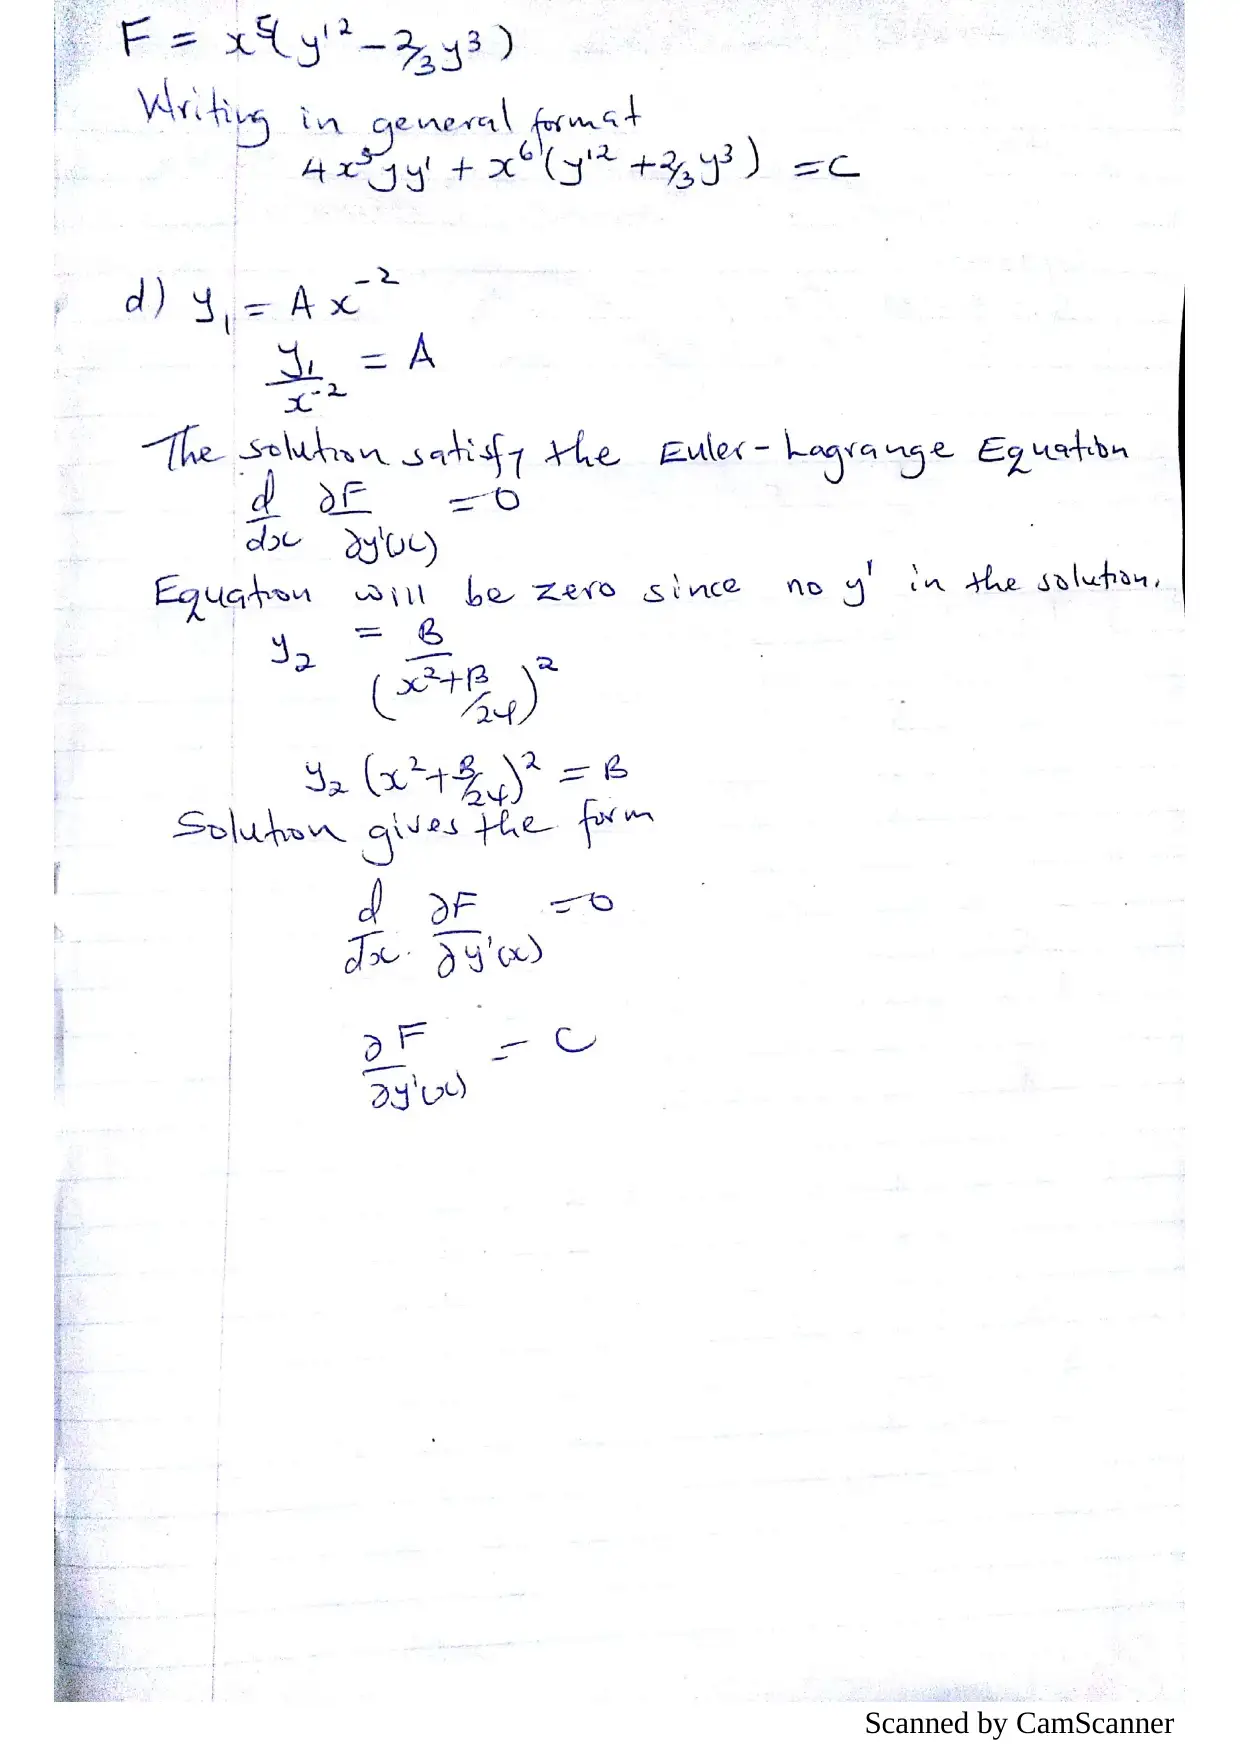 F = x⁵(y'² − 2/3 y³)
Writing in general format
4x⁵yy' + x⁶(y'² + 2/3 y³) = C
d) y₁ = A x⁻²
y₁/x⁻² = A
The solution satisfy the Euler-Lagrange Equation
d/dx ∂F/∂y'(x) = 0
Equation will be zero since no y' in the solution.
y₂ = B/(x²+B/24)²
y₂ (x²+B/24)² = B
Solution gives the form
d/dx . ∂F/∂y'(x) = 0
∂F/∂y'(x) = C
Scanned by CamScanner